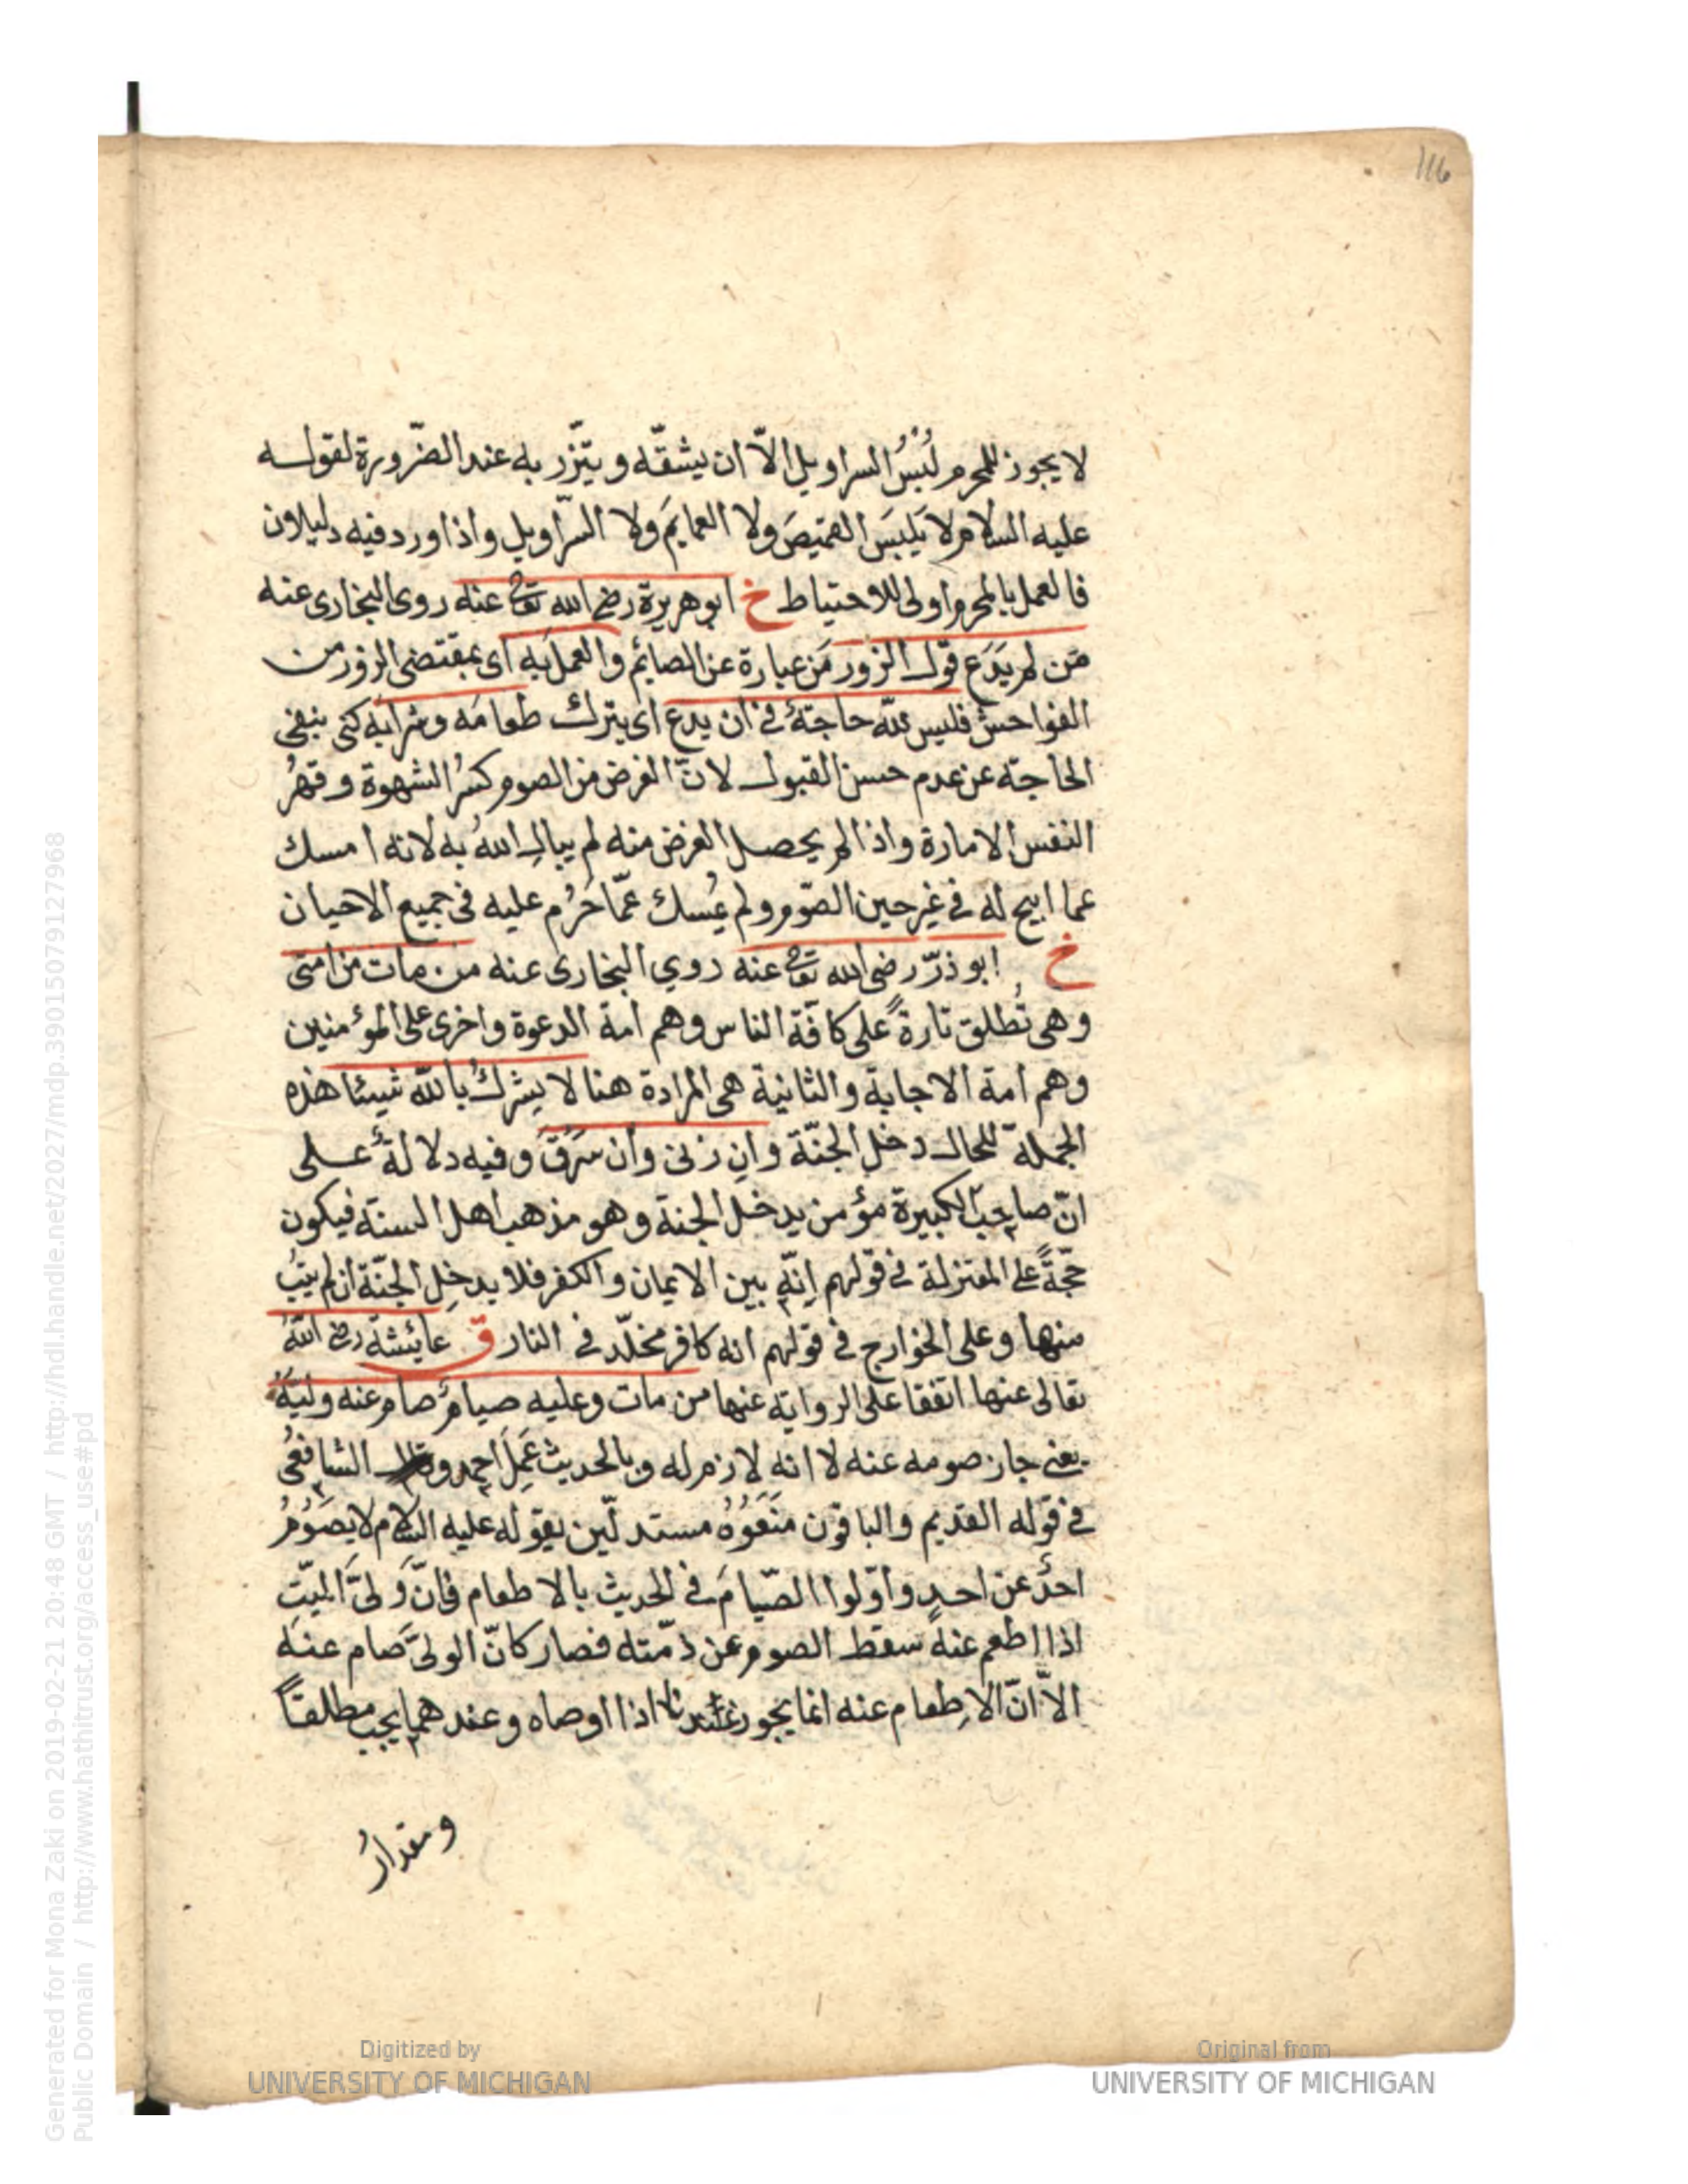 116
لا يجوز للمحرم لُبْسُ السراويل الّا ان يشقّه ويتّزر به عند الضّرورة لقوله
عليه السلام لا يَلبَس القميصَ ولا العمايمَ ولا السّراويل واذا ورد فيه دليلان
فالعمل بالمحرم اولى للاحتياط خ ابو هريرة رضى الله تعا عنه روى البخارى عنه
مَن لم يَدَع قول الزور مَن عبارة عن الصائم والعملَ به اى بمقتضى الزور من
الفواحش فليس للّه حاجةٌ في ان يدع اى يترك طعامَه وشرابَه كنى بنفى
الحاجة عن عدم حسن القبول لانّ الغرض من الصوم كسرُ الشهوة وقهرُ
النفس الامارة واذا لم يحصل الغرض منه لم يبالِ اللهُ به لانه امسك
عما ابيح له في غير حين الصّوم ولم يُمسك عمّا حَرُم عليه في جميع الاحيان
خ ابو ذرّ رضى الله تعا عنه روي البخارى عنه من مات من امتى
وهى تُطلق تارةً على كافّة الناس وهم امة الدعوة واخرى على المؤمنين
وهم امة الاجابة والثانية هى المرادة هنا لا يشركُ باللّه شيئا هذه
الجملة للحال دخل الجنّة وانِ زنى وان سَرَقَ وفيه دلالةٌ على
انّ صاحب الكبيرة مؤمن يدخل الجنة وهو مذهب اهل السنة فيكون
حجّةً على المعتزلة في قولهم اِنّه بين الايمان والكفر فلا يدخل الجنّة ان لم يتُب
منها وعلى الخوارج في قولهم انه كافر مخلّد في النار ق عايشة رضى اللهُ
تعالى عنها اتفقا على الرواية عنها من مات وعليه صيامٌ صام عنه وليّهُ
يعنى جاز صومه عنه لا انه لازم له وبالحديث عَمِلَ احمد و الشافعىُ
في قوله القديم والباقون مَنَعُوهُ مستدلّين بقوله عليه السلام لا يصَوُمُ
احدٌ عن احدٍ واوّلوا الصّيامَ في الحديث بالاطعام فانّ ولىَّ الميّتِ
اذا اطعم عنه سقط الصوم عن ذمّته فصار كانّ الولىَّ صام عنه
الاّ انّ الاِطعام عنه انما يجوز عندنا اذا اوصاه وعندهما يجب مطلقاً
ومقدارُ
Generated for Mona Zaki on 2019-02-21 20:48 GMT / http://hdl.handle.net/2027/mdp.39015079127968
Public Domain / http://www.hathitrust.org/access_use#pd
Digitized by
UNIVERSITY OF MICHIGAN
Original from
UNIVERSITY OF MICHIGAN